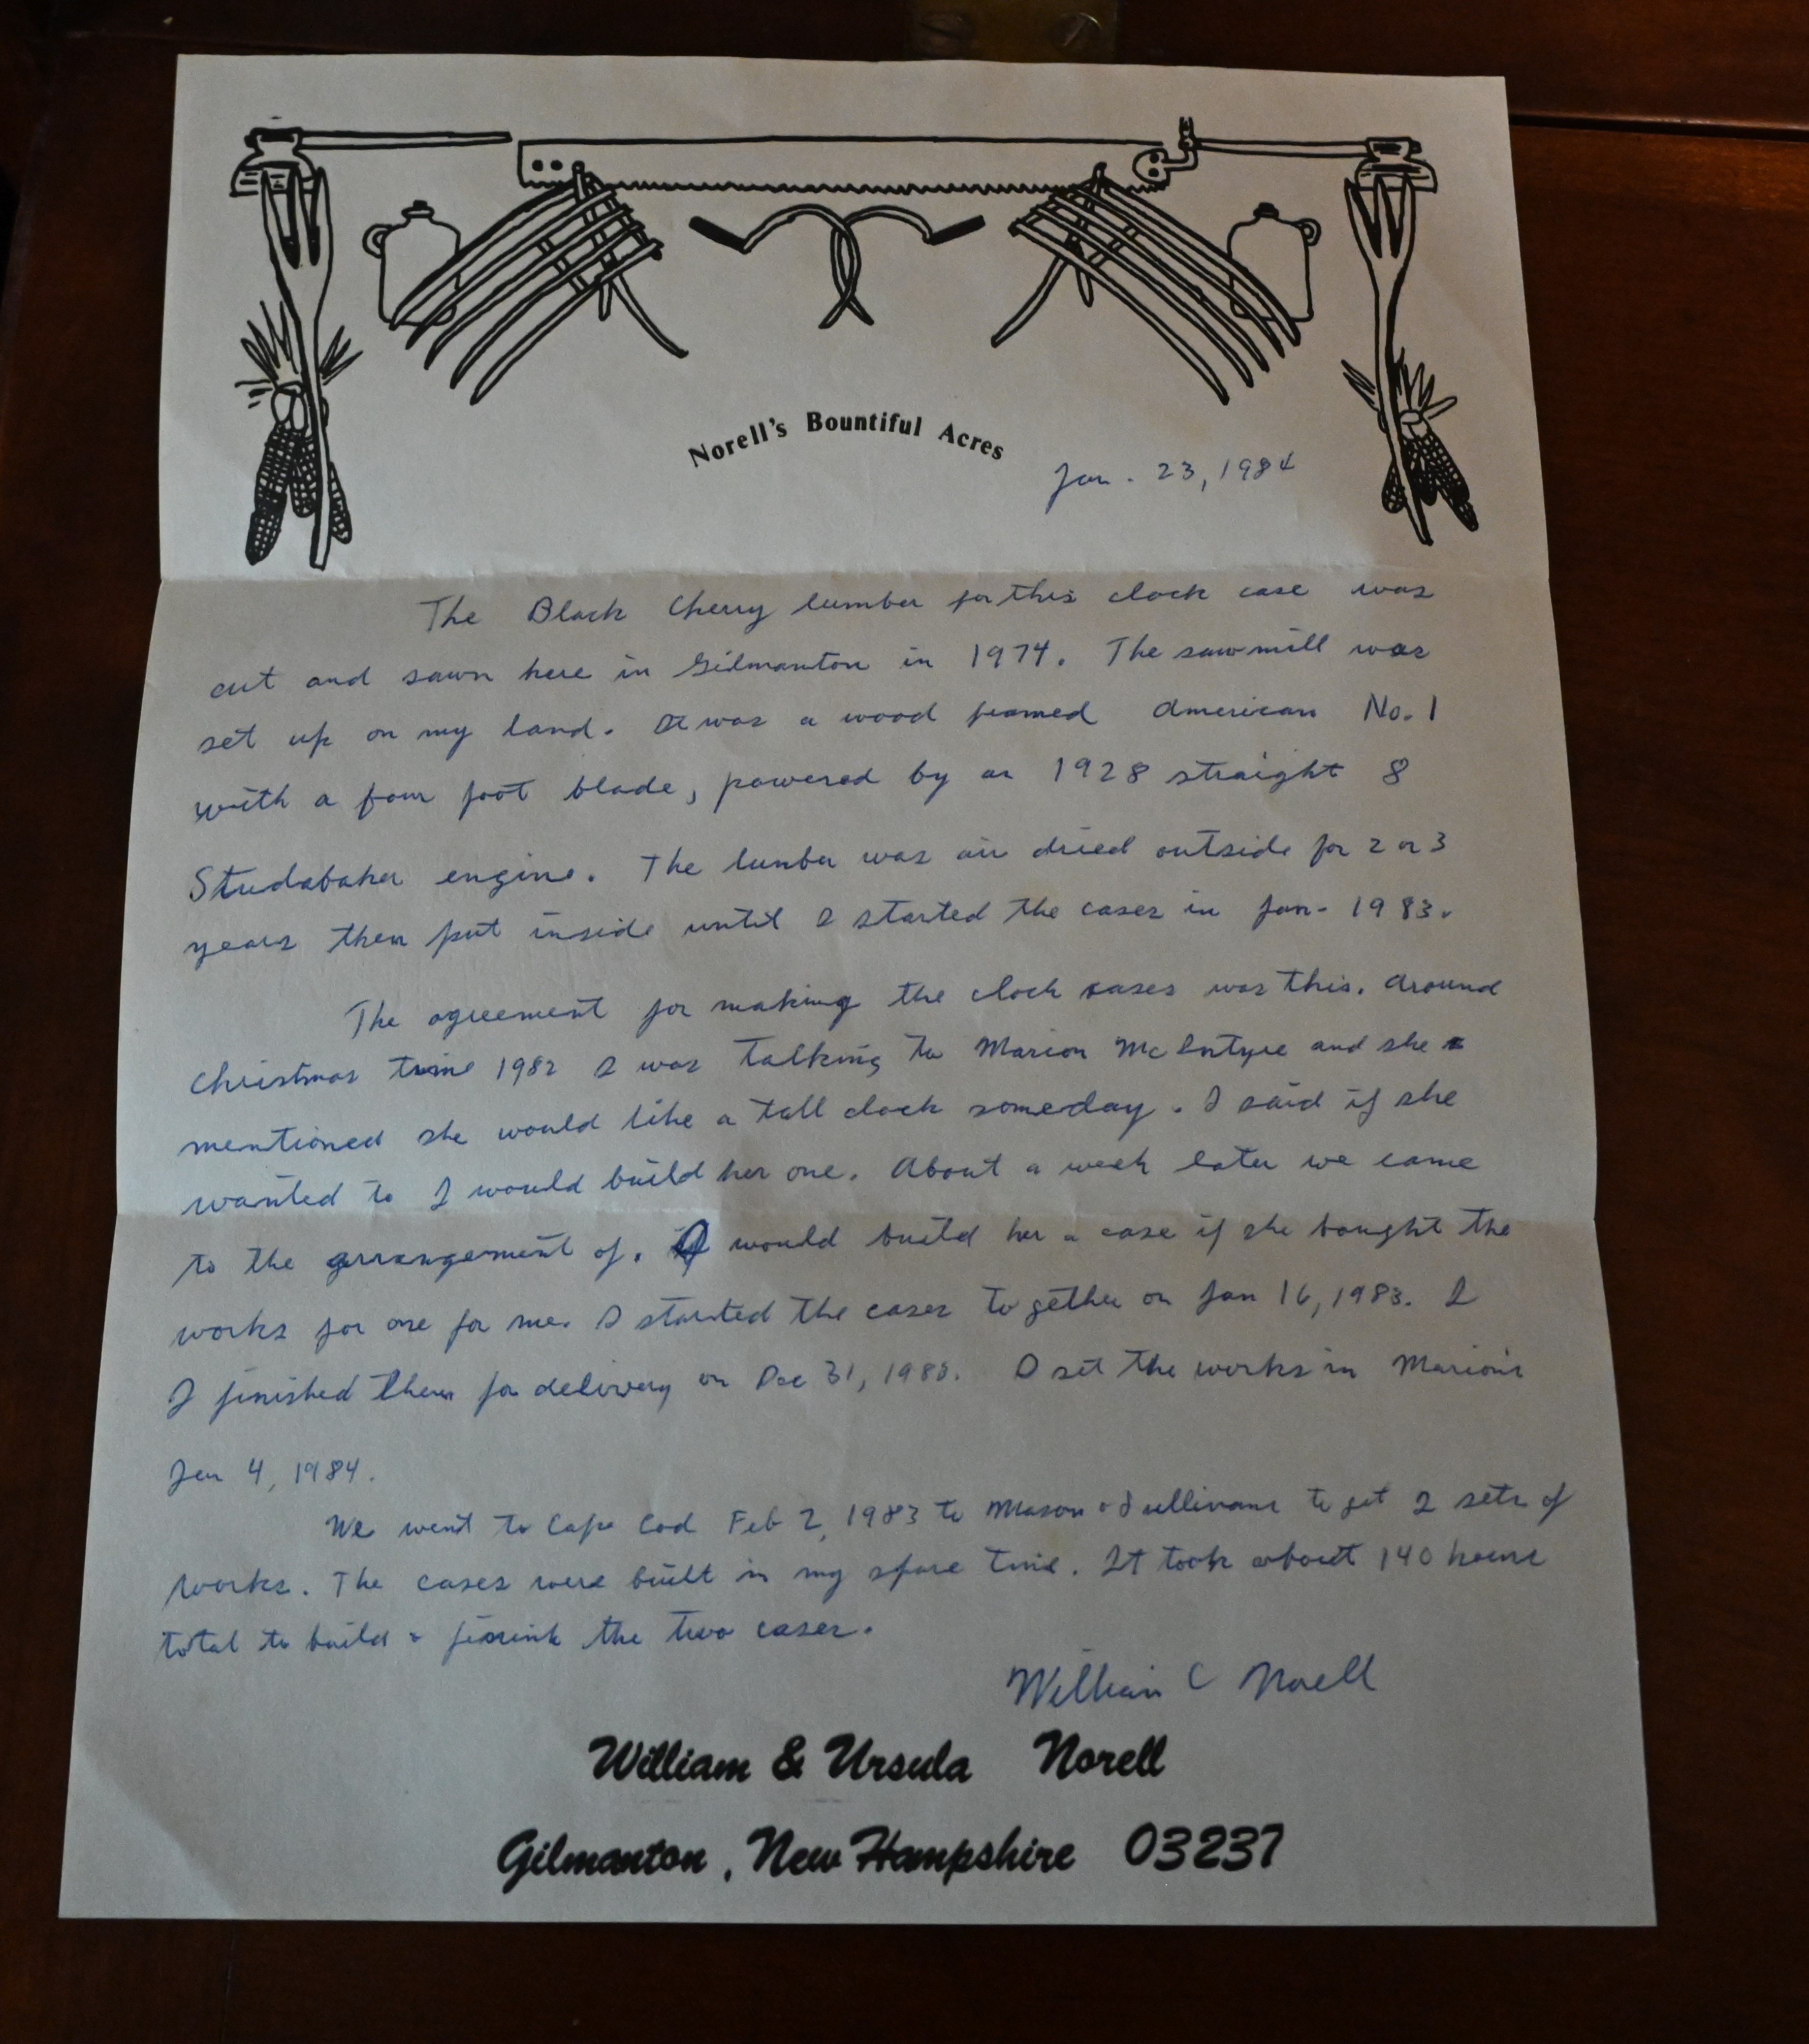 Norell's Bountiful Acres
Jan. 23, 1984
The Black Cherry lumber for this clock case was
cut and sawn here in Gilmanton in 1974. The sawmill was
set up on my land. It was a wood framed American No. 1
with a four foot blade, powered by an 1928 straight 8
Studabaker engine. The lumber was air dried outside for 2 or 3
years then put inside until I started the cases in Jan- 1983.
The agreement for making the clock cases was this. Around
Christmas time 1982 I was talking to Marion McIntyre and she
mentioned she would like a tall clock someday. I said if she
wanted to I would build her one. About a week later we came
to the arrangement of. I would build her a case if she bought the
works for one for me. I started the cases together on Jan 16, 1983. I
I finished them for delivery on Dec 31, 1983. I set the works in Marion's
Jan 4, 1984.
We went to Cape Cod Feb 2, 1983 to Mason & Sullivans to get 2 sets of
works. The cases were built in my spare time. It took about 140 hours
total to build & finish the two cases.
William C Norell
William & Ursula Norell
Gilmanton, New Hampshire 03237